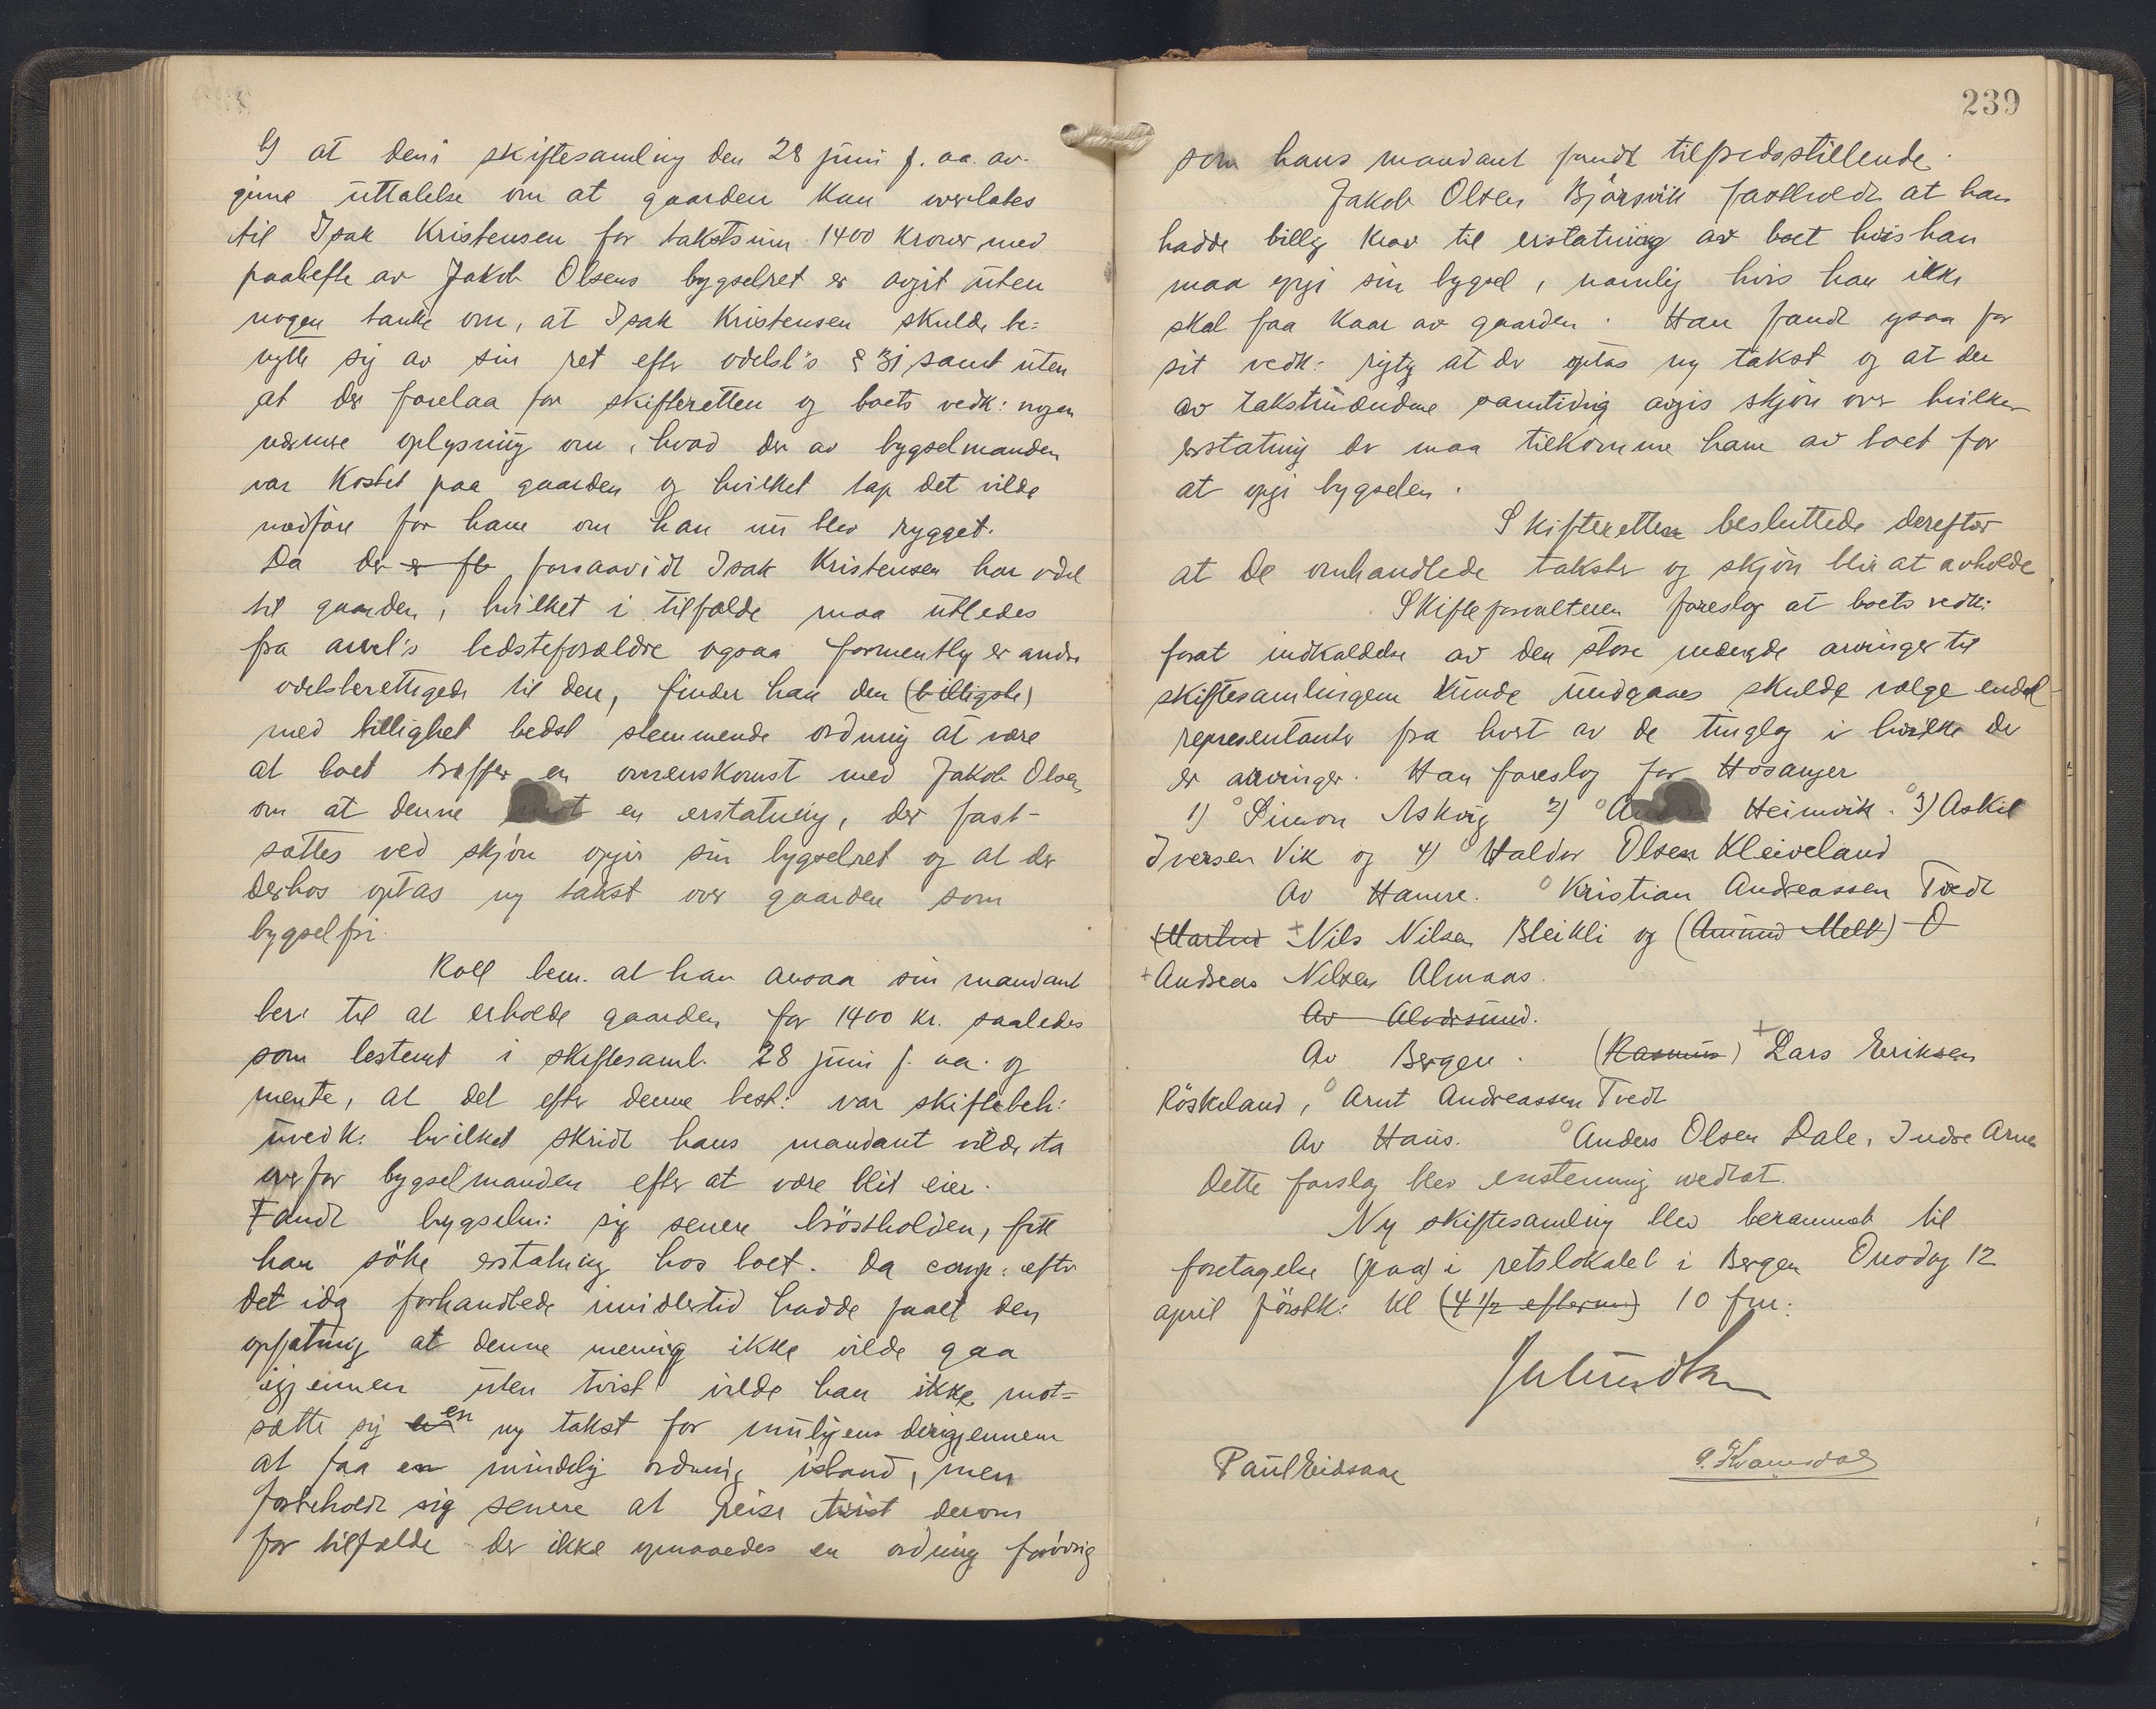 og at den i skiftesamling den 28 juni f. aa. av-
givne uttalelse om at gaarden kun overlates
til Isak Kristensen for takstsum 1400 kroner med
paahefte av Jakob Olsens bygselret er avgit uten
nogen tanke om, at Isak Kristensen skulde be=
nytte sig av sin ret efter odelsl's § 31, samt uten
at der forelaa for skifteretten og boets vedk: nogen
nærmere oplysning om, hvad der av bygselmanden
var kostet paa gaarden og hvilket tap det vilde
medföre for ham om han nu blev rygget.
Da der er fle forsaavidt Isak Kristensen har odel
til gaarden, hvilket i tilfælde maa utledes
fra arvel's bedsteforældre ogsaa formently er andre
odelsberettigede til den, finder han den (billigste)
med billighet bedst stemmende ordning at være
at boet træffer en overenskomst med Jakob Olsen
om at denne mot en erstatning, der fast-
sættes ved skjön opgir sin bygselret og at der
derhos optas ny takst over gaarden som
bygselfri.
Koll bem. at han ansaa sin mandant
ber: til at erholde gaarden for 1400 kr. saaledes
som bestemt i skiftesaml. 28 juni f. aa. og
mente, at det efter denne best: var skiftebeh:
uvedk: hvilket skridt hans mandant vilde ta
overfor bygselmanden efter at være blit eier.
Fandt bygselm: sig senere bröstholden, fik
han söke erstatning hos boet. Da comp: efter
det idag forhandlede imidlertid hadde faaet den
opfatning at denne mening ikke vilde gaa
igjennem uten tvist vilde han ikke mot=
sætte sig en ny takst for muligens derigjennem
at faa en mindelig ordning istand, men
forbeholdt sig senere at reise tvist derom
for tilfælde der ikke opnaaedes en ordning forövrig
239
som hans mandant fandt tilfredsstillende.
Jakob Olsen Björsvik fastholdt at han
hadde billig krav til erstatning av boet hvis han
maa opgi sin bygsel, namlig hvis han ikke
skal faa kaar av gaarden. Han fandt ogsaa for
sit vedk: rigtig at der optas ny takst og at der
av takstmændene samtidig avgis skjön over hvilken
erstatning der maa tilkomme ham av boet for
at opgi bygselen.
Skifteretten besluttede derefter
at de omhandlede takster og skjön blir at avholde
Skifteforvalteren foreslog at boets vedk:
forat indkaldelse av den store mængde arvinger til
skiftesamlingern kunde undgaaes skulde vælge endel
representanter fra hvert av de tinglag i hvilke der
er arvinger. Han foreslog for Hosanger
1) Simon Askvig 2) Heimvik. 3) Askil
Iversen Vik og 4) Haldor Olsen Kleiveland
Av Hamre. Kristian Andreassen Tvedt
(Martin + Nils Nilsen Bleikli og (Amund Melt) O
+ Andreas Nilsen Almaas.
Av Alversund.
Av Bergen. (Rasmus) + Lars Eriksen
Röskeland, Arnt Andreassen Tvedt
Av Haus. Anders Olsen Dale, Indre Arne
Dette forslag blev enstemmig vedtat.
Ny skiftesamling blev berammet til
foretagelse (paa) i retslokalet i Bergen Onsdag 12
april förstk: kl (4 1/2 efterm:) 10 fm:
Paul Eidsaae